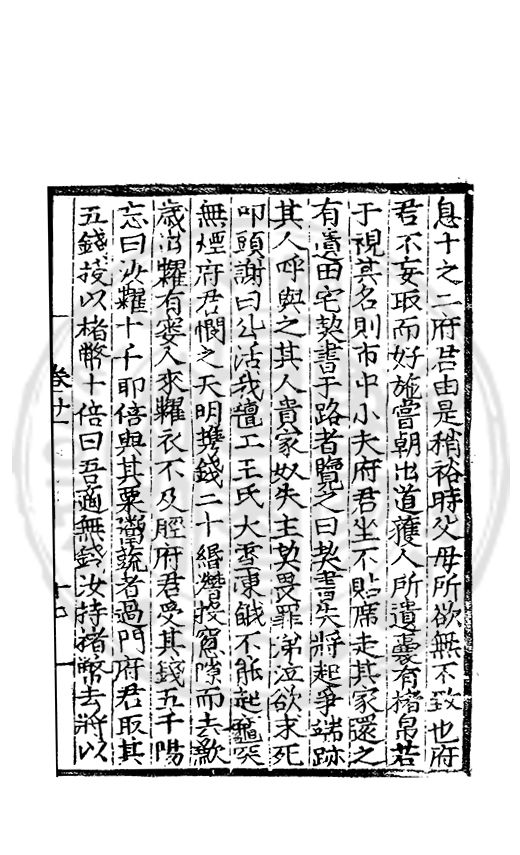 息十之二府君由是稍裕時父母所欲無不致也府
君不妄取而好施嘗朝出道獲人所遺橐有楮帛若
于視其名則市中小夫府君坐不貼席走其家還之
有遺田宅契書于路者覽之曰契書失將起爭端跡
其人呼與之其人貴家奴失主契畏罪涕泣欲求死
叩頭謝曰公活我氊工王氏大雪凍餓不能起竈突
無煙府君憫之天明携錢二十緡潛投窻隙而去歉
歲治糶有窶人來糴衣不及脛府君受其錢五千陽
忘曰汝糴十千耶倍與其粟鬻蔬者過門府君取其
五錢授以楮幣十倍曰吾適無錢汝持楮幣去將以
卷廿一
十七